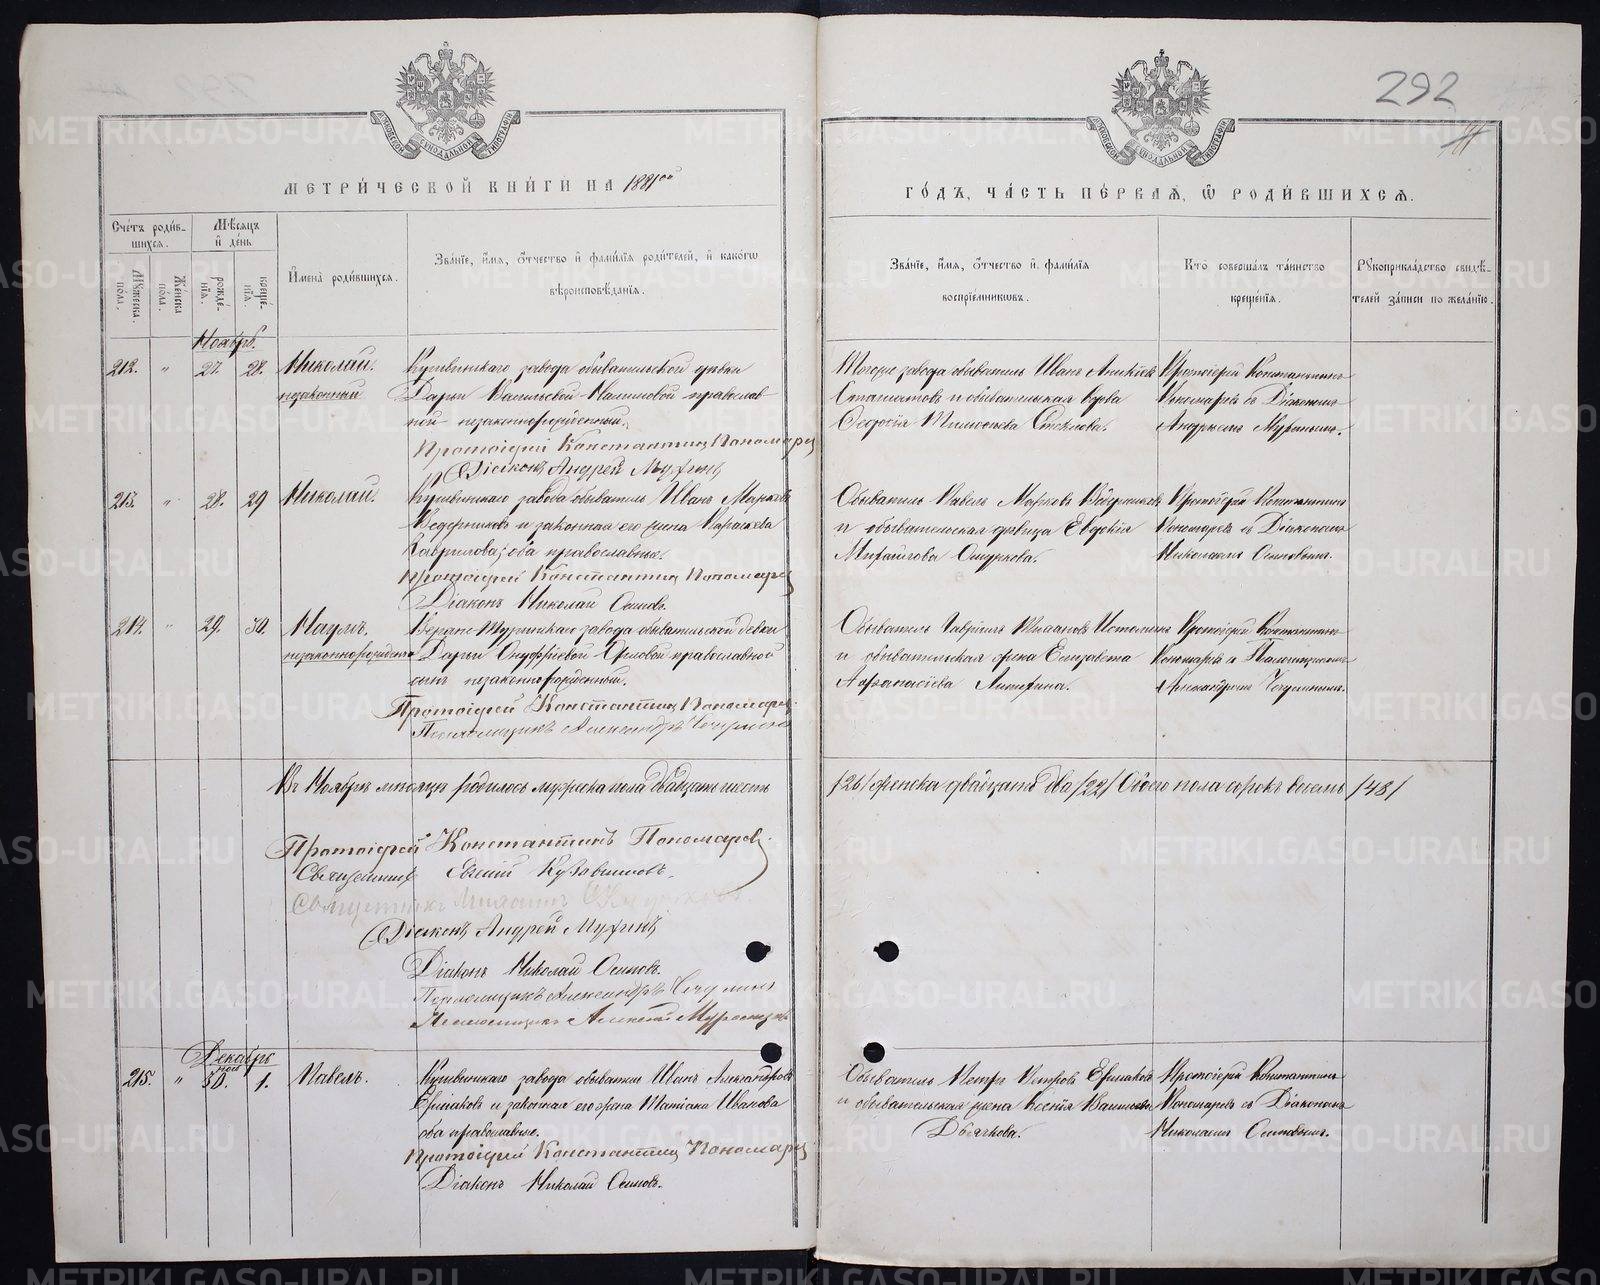 292
МЕТРИ́ЧЕСКОЙ КНИ́ГИ НА 1881ой
ГО́ДЪ, ЧА́СТЬ ПЕ́РВАѦ, Ѿ РОДИ́ВШИХСѦ.
Сче́тъ роди́в-
шихся.
Мѣ́сяцъ
и де́нь
Му́жеска пола.
Же́нска пола.
рожде́-
нїя.
креще́-
нїя.
И́мена роди́вшихся.
Зва́нїе, и́мя, о́тчество и фами́лїя роди́телей, и како́гω
вѣроисповѣ́данїя.
Зва́нїе, и́мя, о́тчество и фами́лїя
воспрїе́мникωвъ.
Кто̀ соверша́лъ та́инство
креще́нїя.
Рꙋкоприкла́дство свидѣ́-
телей за́писи по жела́нїю.
Ноябрь.
212. " 27. 28. Николай.
незаконный
Кушвинскаго завода обывательской дѣвки
Дарьи Васильевой Налимовой православ-
ной незаконнорожденный.
Протоіерей Константинъ Пономаревъ
Діаконъ Андрей Мухинъ
Тогоже завода обыватель Иванъ
и обывательская вдова
Федосія Тимофеева
Протоіерей Константинъ
Пономаревъ съ Діакономъ
Андреемъ Мухинымъ.
213. " 28. 29 Николай.
Кушвинскаго завода обыватель Иванъ Марковъ
Ведерниковъ и законная его жена Параскева
Гаврилова; оба православные.
Протоіерей Константинъ Пономаревъ
Діаконъ Николай Осиповъ.
Обыватель Павелъ Марковъ Ведерниковъ
и обывательская дѣвица Евдокія
Михайлова
Протоіерей Константинъ
Пономаревъ съ Діакономъ
Николаемъ Осиповымъ.
214. " 29. 30. Наумъ.
незаконнорожденный
Верхне-Туринскаго завода обывательской девки
Дарьи Онуфріевой Орловой православной
сынъ незаконнорожденный.
Протоіерей Константинъ Пономаревъ
Псаломщикъ Александръ
Обыватель Гавріилъ Истоминъ
и обывательская жена Елизавета
Афанасіева
Протоіерей Константинъ
Пономаревъ и Псаломщикомъ
Александромъ
Въ Ноябрѣ мѣсяцѣ родилось мужеска пола двадцать шесть /26/ женска двадцать два /22/ Обоего пола сорокъ восемь /48/
Протоіерей Константинъ Пономаревъ
Священникъ Евгеній Кузовниковъ.
Діаконъ Андрей Мухинъ
Діаконъ Николай Осиповъ.
Псаломщикъ Александръ
Псаломщикъ Алексей
Декабрь
215. " ноя 30. 1. Павелъ.
Кушвинскаго завода обыватель Иванъ Александровъ
Ермаковъ и законная его жена Татіана Иванова
оба православные.
Протоіерей Константинъ Пономаревъ
Діаконъ Николай Осиповъ.
Обыватель Петръ Петровъ Ермаковъ
и обывательская жена Ксенія
Дьячкова.
Протоіерей Константинъ
Пономаревъ съ Діакономъ
Николаемъ Осиповымъ.
METRIKI.GASO-URAL.RU